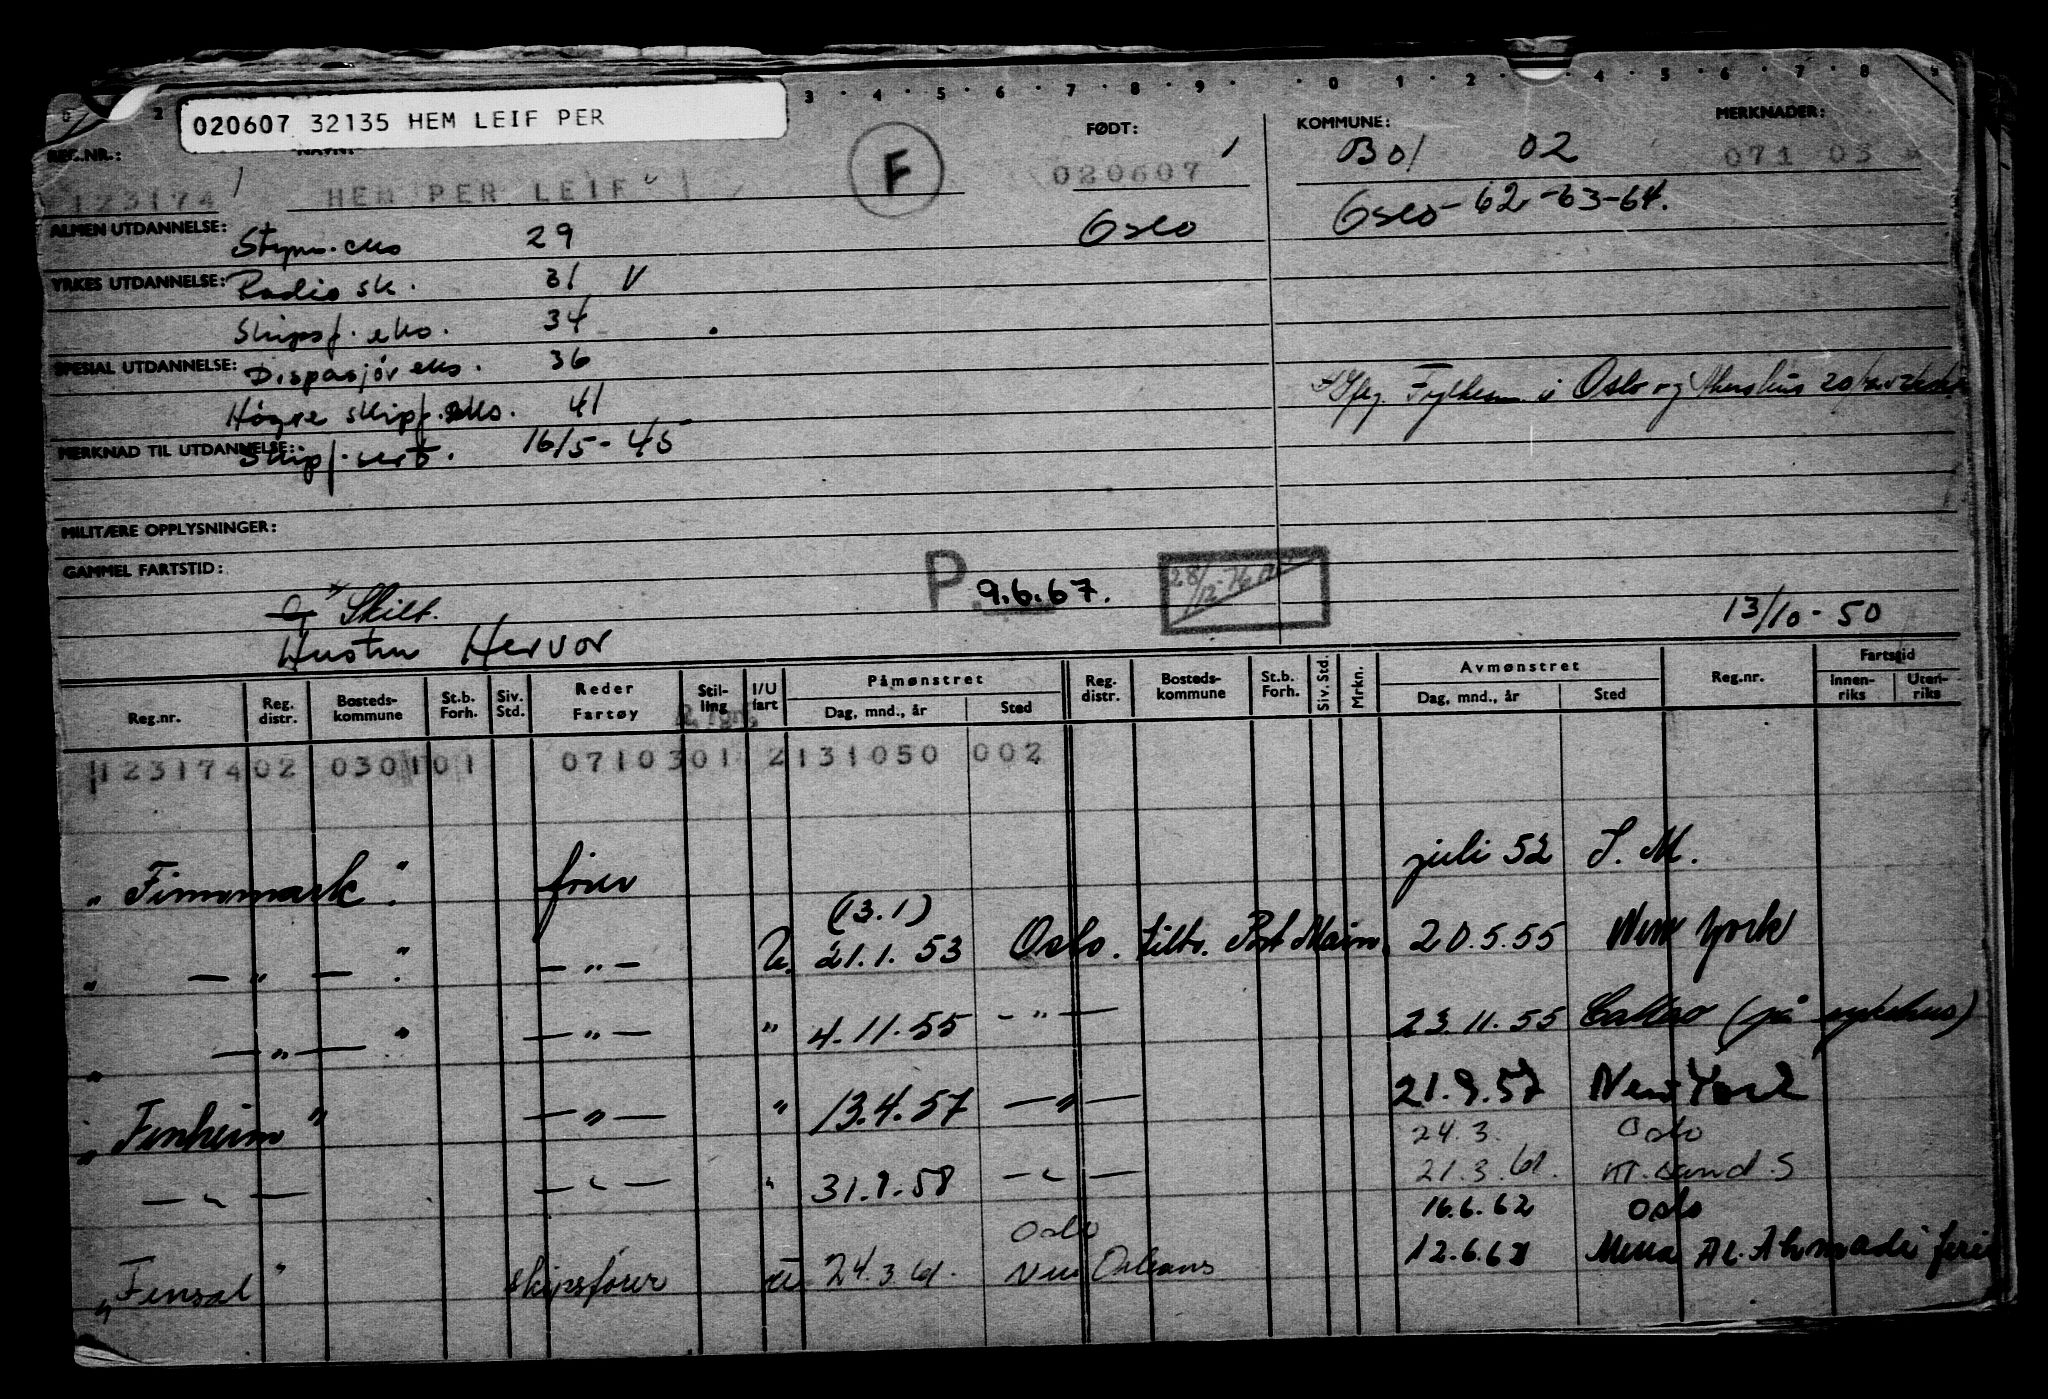 020607 32135 HEM LEIF PER
REG.NR.: NAVN: FØDT: KOMMUNE: MERKNADER:
123174 HEM PER LEIF F 020607 0301 02 071 03
ALMEN UTDANNELSE: Styrm. eks 29 Oslo Oslo - 62-63-64.
YRKES UTDANNELSE: Radio sk. 31 V
Skipsf. eks. 34
SPESIAL UTDANNELSE: Dispasjör eks. 36
Fylkesm. i Oslo og Akershus
Høgre skipsf. eks. 41
MERKNAD TIL UTDANNELSE: Skipsf. sert. 16/5-45
MILITÆRE OPPLYSNINGER:
GAMMEL FARTSTID:
P. 9.6.67. 28/12-76
Skilt.
13/10-50
Hustru Hervor
Reg.nr. Reg. distr. Bosteds-kommune St.b. Forh. Siv. Std. Reder Fartøy Stil-ling I/U fart Påmønstret Dag, mnd., år Sted Reg. distr. Bosteds-kommune St.b. Forh. Siv. Std. Mrkn. Avmønstret Dag, mnd., år Sted Reg.nr. Fartstid Innen-riks Uten-riks
123174 02 0301 01 0710301 2 131050 002
" Finnmark " fører juli 52 S. M.
(3.1)
" — " — " — " — U. 21.1.53 Oslo. 20.5.55 New York
" — " — " — " — " 4.11.55 - " — 23.11.55 Callao (på sykehus)
" Finnheim " — " — " 13.4.57 — " — 21.9.57 New York
24.3. Oslo
— " — — " — " 31.1.58 — " — 21.3.61. Kr. sand. S
16.6.62 Oslo
Oslo
" Finsal " skipsfører U. 24.3.61. New Orleans 12.6.63 Mena Al. Ahmadi ferie